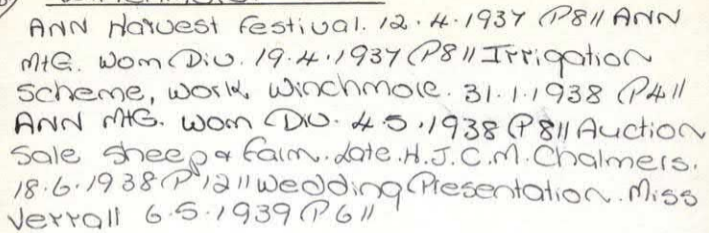 ANN Harvest Festival. 12.4.1937 (P8// ANN
MtG. Wom Div. 19.4.1937 (P8// Irrigation
Scheme, work, Winchmore. 31.1.1938 (P4//
ANN MtG. Wom Div. 4.5.1938 (P8// Auction
Sale sheep & farm. Late. H.J.C.M. Chalmers.
18.6.1938 P12// Wedding Presentation. Miss
Verrall 6.5.1939 (P6//